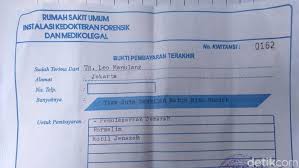 RUMAH SAKIT UMUM
INSTALASI KEDOKTERAN FORENSIK
DAN MEDIKOLEGAL
No. KWITANSI : 0162
BUKTI PEMBAYARAN TERAKHIR
Sudah Terima Dari : TN. Leo
Alamat : Jakarta
No. Telp. :
Banyaknya : Tiga Juta
Untuk Pembayaran : - Pemulasaran Jenazah
Formalin
Mobil Jenazah
detikcom